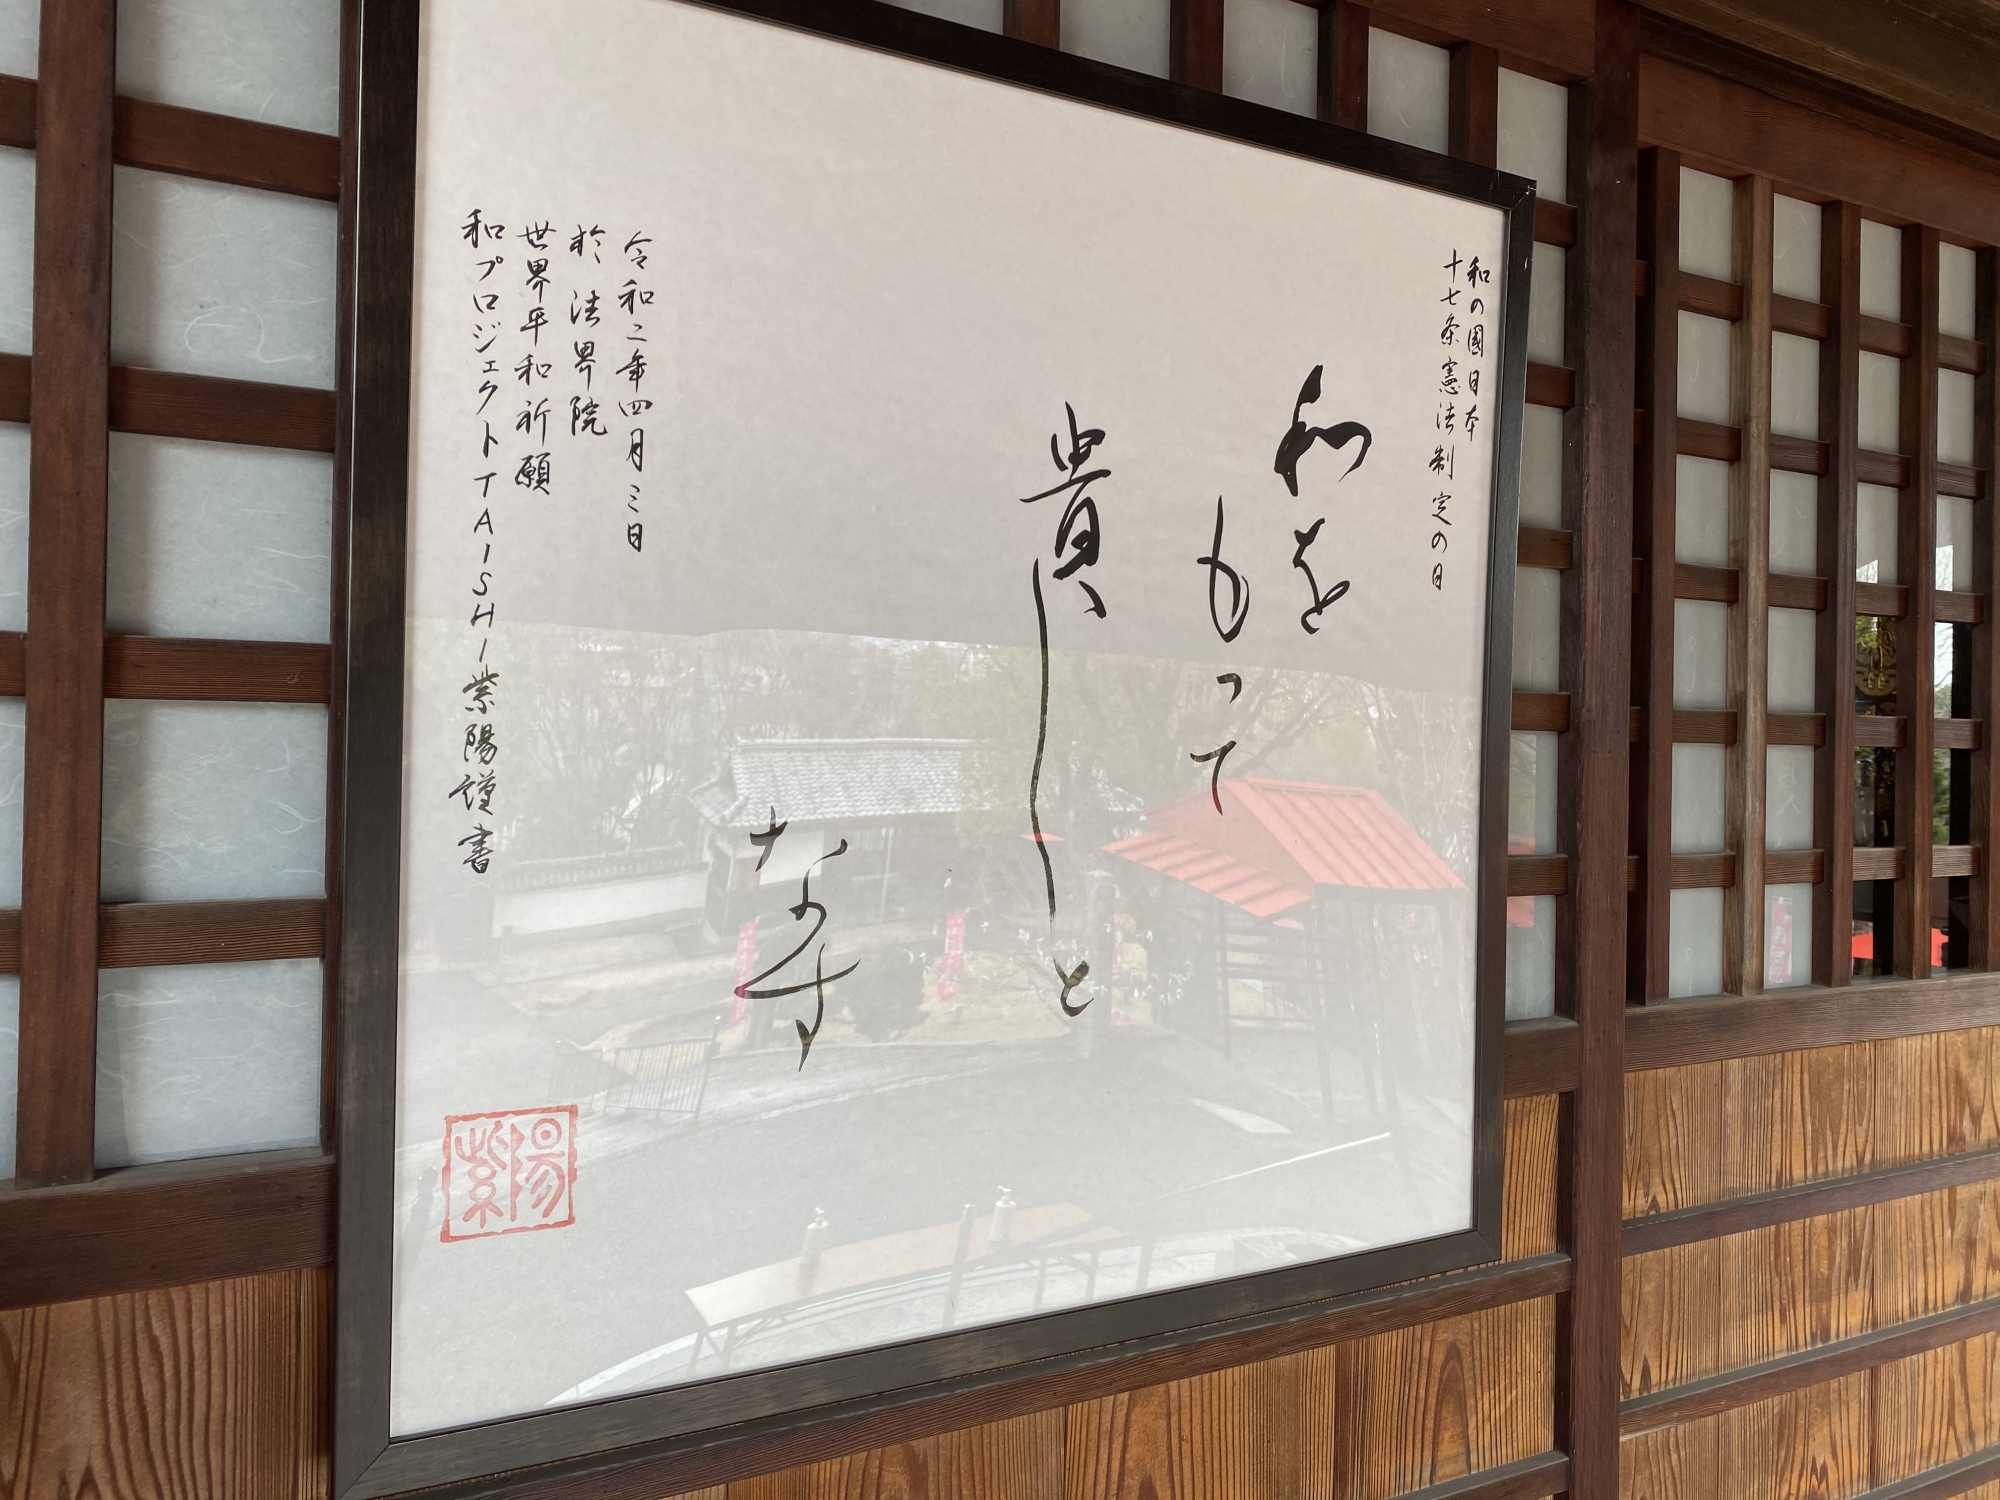 和の國日本
十七条憲法制定の日
和を
もって
貴しと
なす
令和二年四月三日
於 法界院
世界平和祈願
和プロジェクトTAISHI紫陽謹書
紫陽